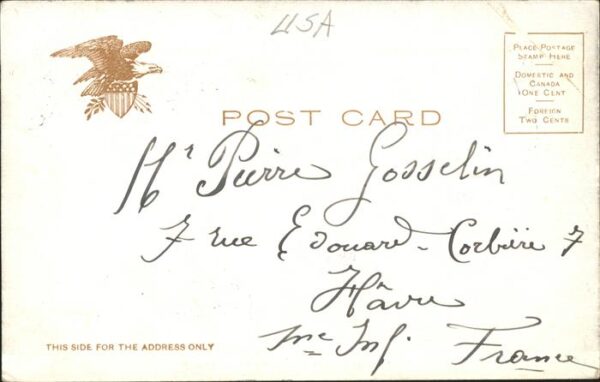 USA
PLACE POSTAGE
STAMP HERE
DOMESTIC AND
CANADA
ONE CENT
FOREIGN
TWO CENTS
POST CARD
Mr Pierre Gosselin
7 rue Edouard-Corbière 7
Hâvre
Sne Inf. France
THIS SIDE FOR THE ADDRESS ONLY